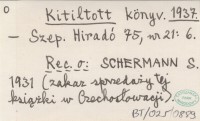 O Kitiltott könyv. 1937.
– Szep. Hiradó 75, nr 21: 6.
Rec. o: SCHERMANN S.
1931 (zakaz sprzedaży tej
książki w Czechosłowacji).
BT/025/0859